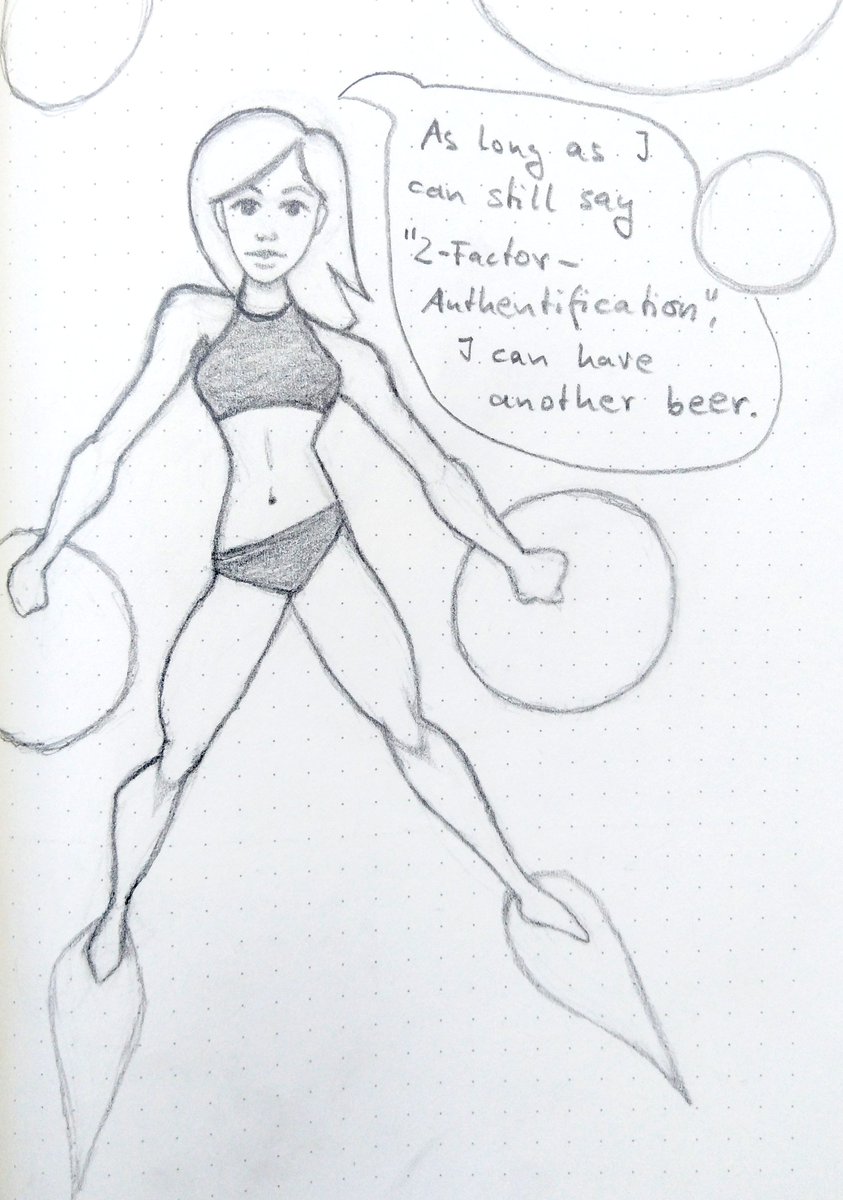 As long as I
can still say
"2-Factor-
Authentification",
I can have
another beer.